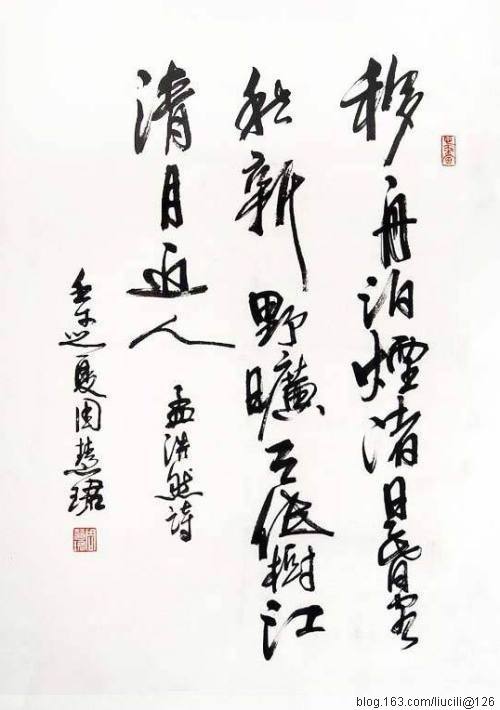 移舟泊煙渚日暮客
愁新野曠天低樹江
清月近人
孟浩然詩
壬午之夏周慧珺
blog.163.com/liucili@126